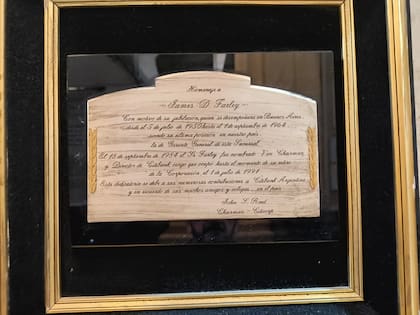 Homenaje a
James D. Farley
Con motivo de su jubilación, quien se desempeñara en Buenos Aires
desde el 5 de julio de 1950 hasta el 1 de septiembre de 1964
siendo su última posición en nuestro país
la de Gerente General de esta Sucursal.
El 18 de septiembre de 1984 el Sr. Farley fue nombrado Vice Chairman
y Director de Citibank cargo que ocupó hasta el momento de su retiro
de la Corporación el 1 de julio de 1991
Esta dedicatoria se debe a sus numerosas contribuciones a Citibank Argentina
y en recuerdo de sus muchos amigos y colegas en el país
John S. Reed
Chairman - Citicorp